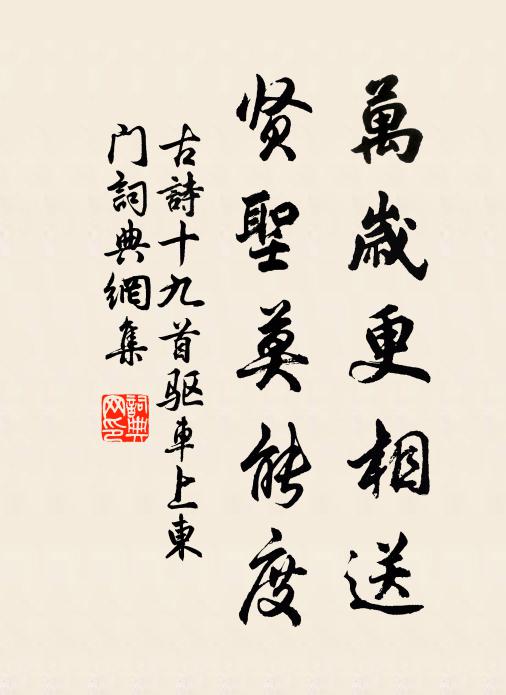 萬歲更相送
贤聖莫能度
古詩十九首驱車上東
门詞典網集
詞典
网印